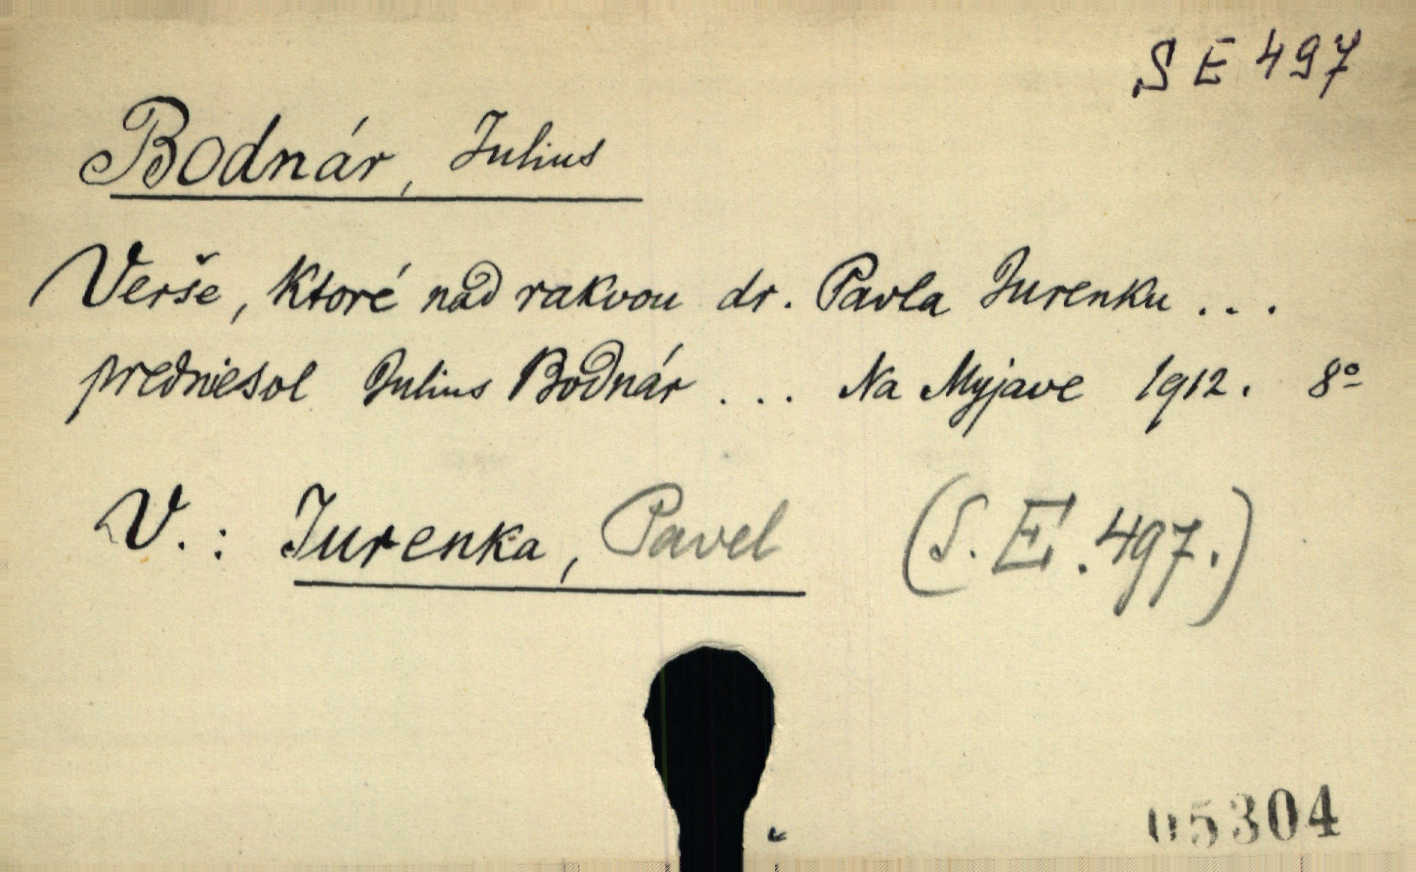 S E 497
Bodnár, Julius
Verše, ktoré nad rakvou dr. Pavla Jurenku ...
predniesol Julius Bodnár ... Na Myjave 1912. 8º
V.: Jurenka, Pavel (S. E. 497.)
05304